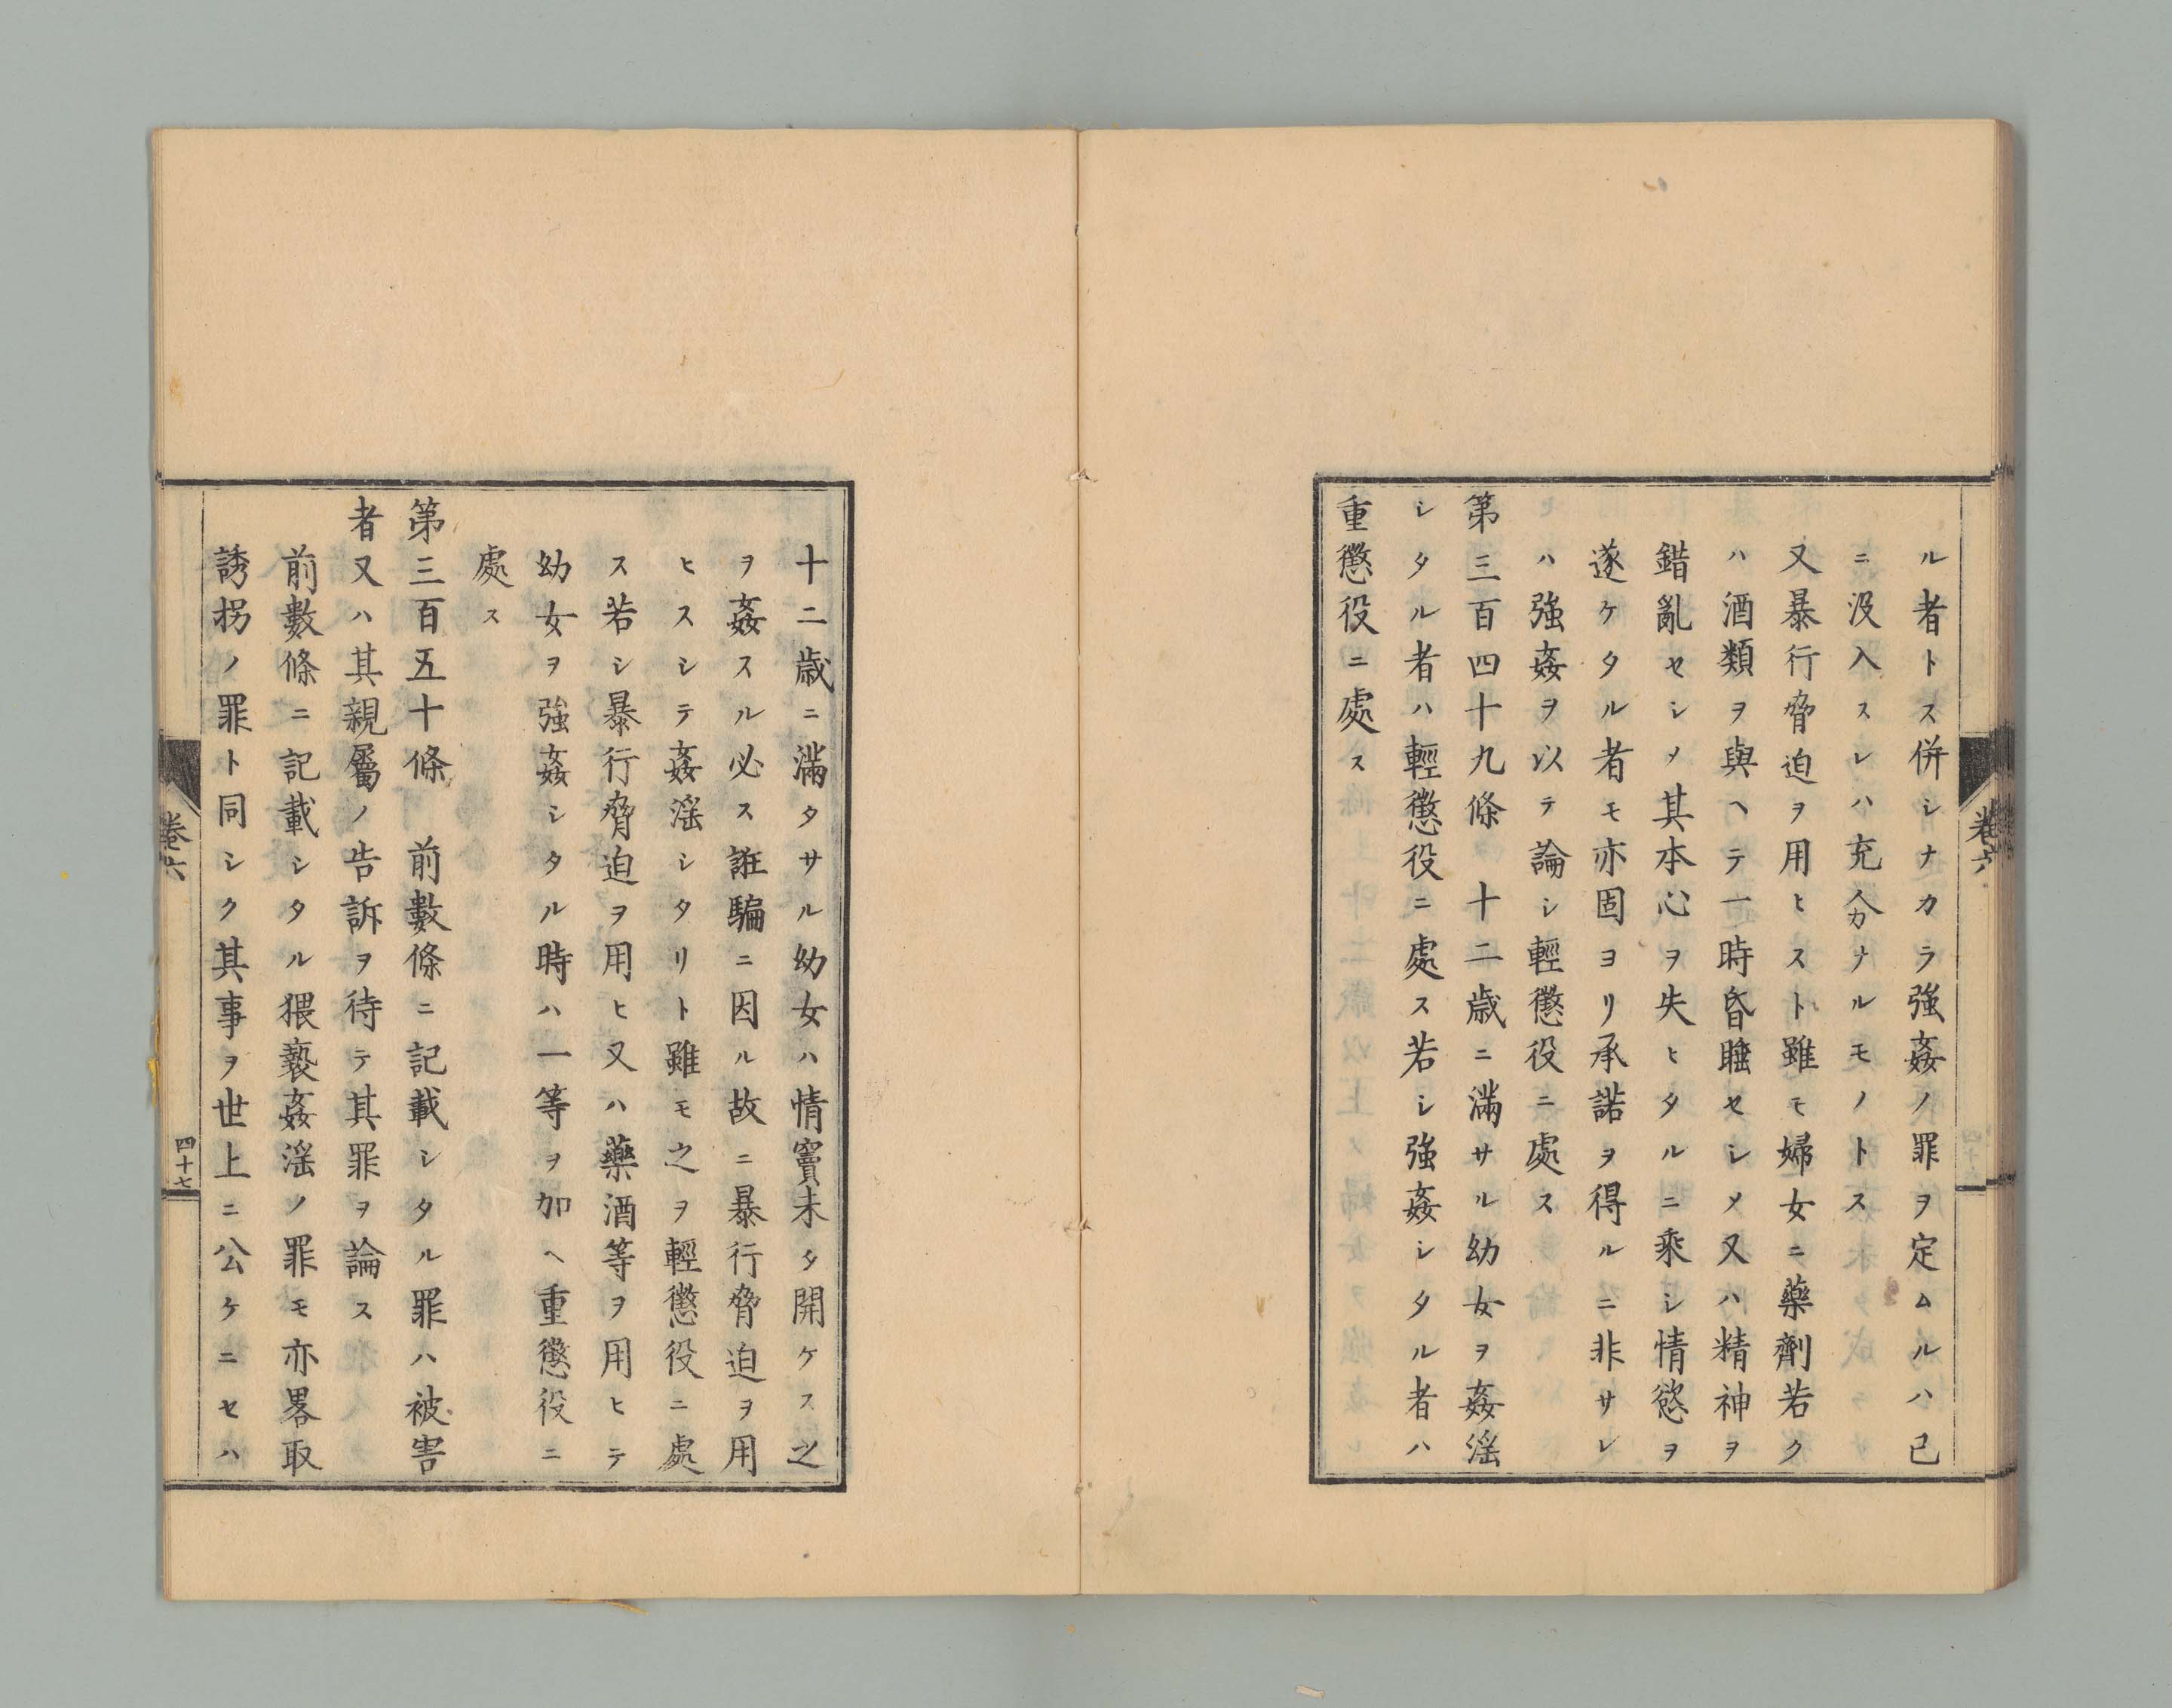 ル者トス併シナカラ強姦ノ罪ヲ定ムルハ已
ニ没入スレハ充分ナルモノトス
又暴行脅迫ヲ用ヒスト雖モ婦女ニ藥劑若ク
ハ酒類ヲ與ヘテ一時昏睡セシメ又ハ精神ヲ
錯亂セシメ其本心ヲ失ヒタルニ乘シ情慾ヲ
遂ケタル者モ亦固ヨリ承諾ヲ得ルニ非サレ
ハ強姦ヲ以テ論シ輕懲役ニ處ス
第三百四十九條 十二歳ニ滿サル幼女ヲ姦淫
シタル者ハ輕懲役ニ處ス若シ強姦シタル者ハ
重懲役ニ處ス
卷六
十二歳ニ滿タサル幼女ハ情竇未タ開ケス之
ヲ姦スル必ス誑騙ニ因ル故ニ暴行脅迫ヲ用
ヒスシテ姦淫シタリト雖モ之ヲ輕懲役ニ處
ス若シ暴行脅迫ヲ用ヒ又ハ藥酒等ヲ用ヒテ
幼女ヲ強姦シタル時ハ一等ヲ加ヘ重懲役ニ
處ス
第三百五十條 前數條ニ記載シタル罪ハ被害
者又ハ其親屬ノ告訴ヲ待テ其罪ヲ論ス
前數條ニ記載シタル猥褻姦淫ノ罪モ亦畧取
誘拐ノ罪ト同シク其事ヲ世上ニ公ケニセハ
卷六
四十七